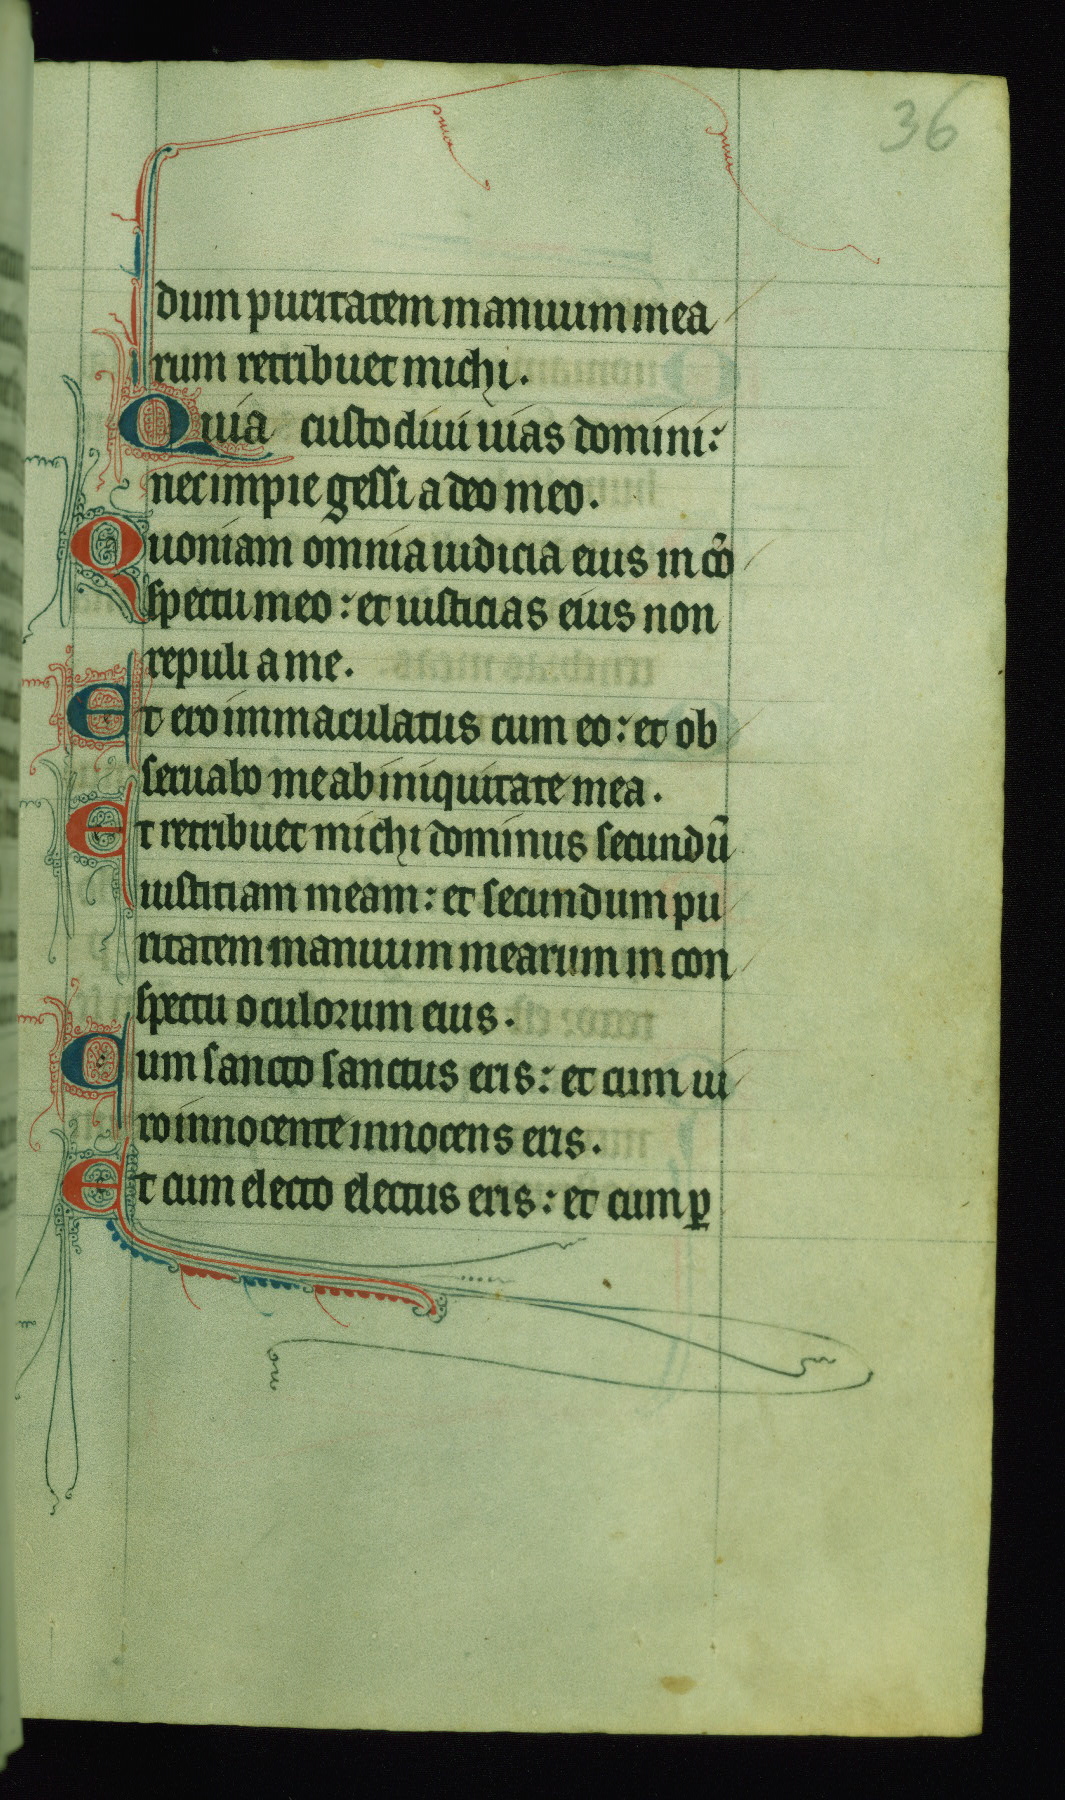 36
dum puritatem manuum mea
rum retribuet michi.
Quia custodiui uias domini:
nec impie gessi a deo meo.
Quoniam omnia iudicia eius in cō
spectu meo: et iusticias eius non
repuli a me.
Et ero immaculatus cum eo: et ob
seruabo me ab iniquitate mea.
Et retribuet michi dominus secundū
iustitiam meam: et secundum pu
ritatem manuum mearum in con
spectu oculorum eius.
Cum sancto sanctus eris: et cum ui
ro innocente innocens eris.
Et cum electo electus eris: et cum ꝑ